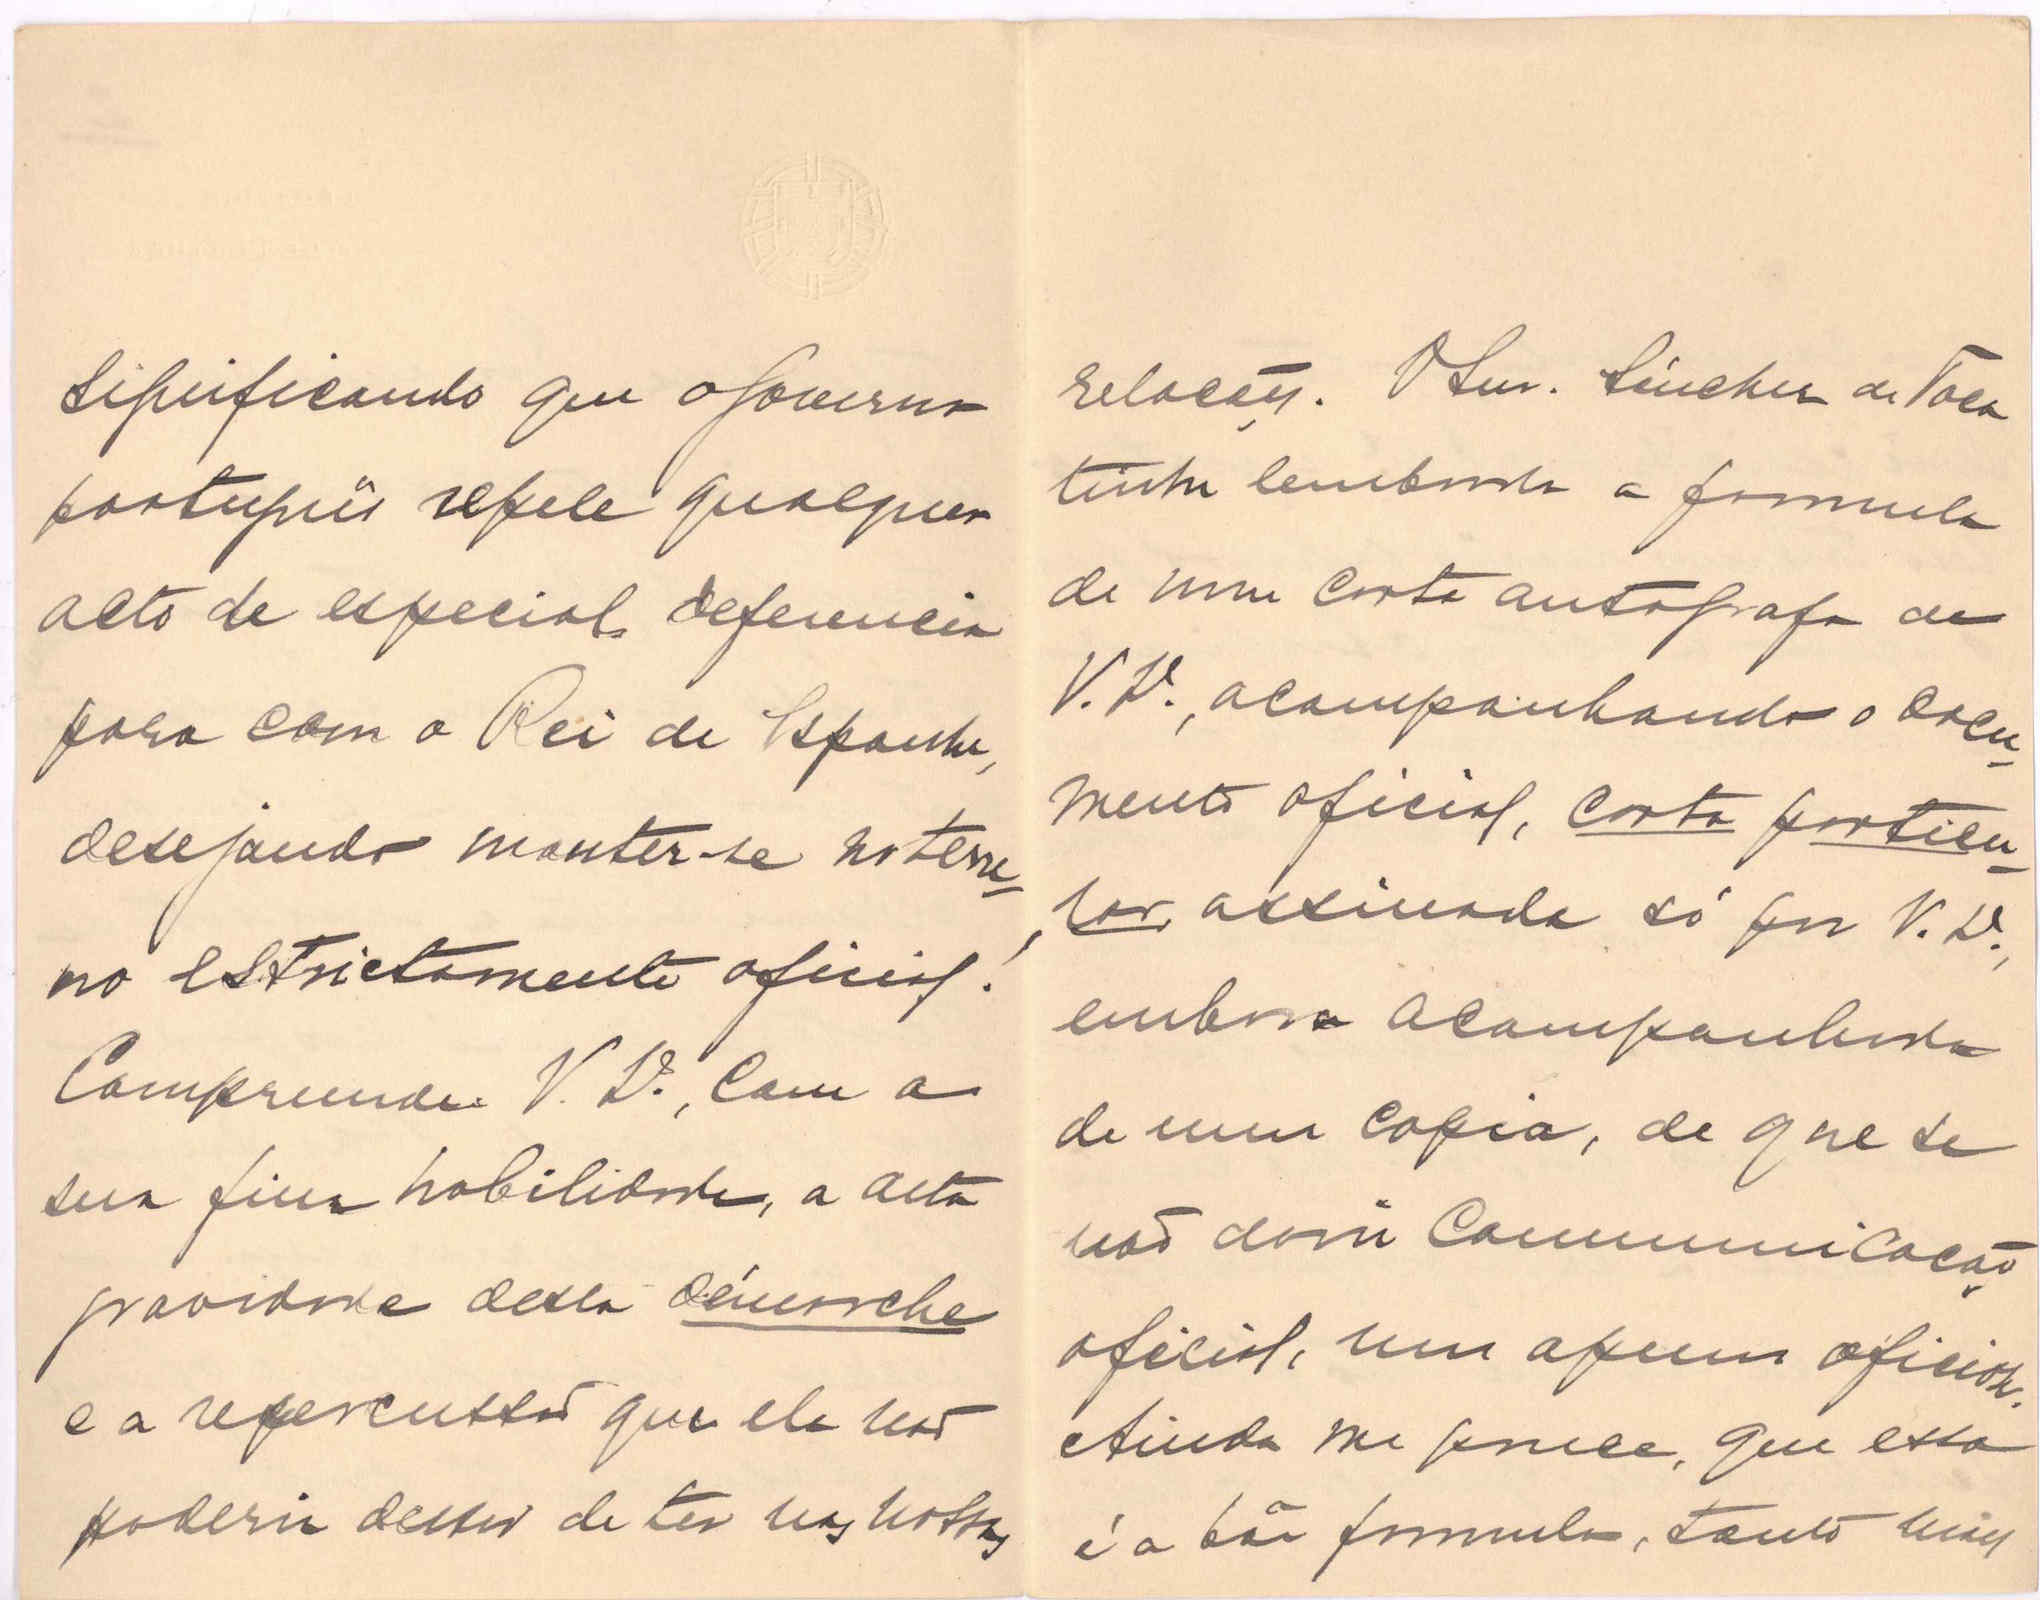 significando que o Governo
português repele qualquer
acto de especial deferencia
para com o Rei de Espanha,
desejando manter-se no terre-
no estrictamente oficial!
Comprende V. Exª., com a
sua fina habilidade, a alta
gravidade desta démarche
e a repercussão que ela não
poderia deixar de ter nas nossas
relações. O Snr. Sánchez de Toca
tinha lembrado a formula
de uma carta autografa de
V. Exª., acompanhando o docu-
mento oficial, carta particu-
lar, assinada só por V. Exª.,
embora acompanhada
de uma copia, de que se
não daria communicação
oficial, mas apenas oficiosa.
Ainda me parece, que essa
é a bôa formula, tanto mais